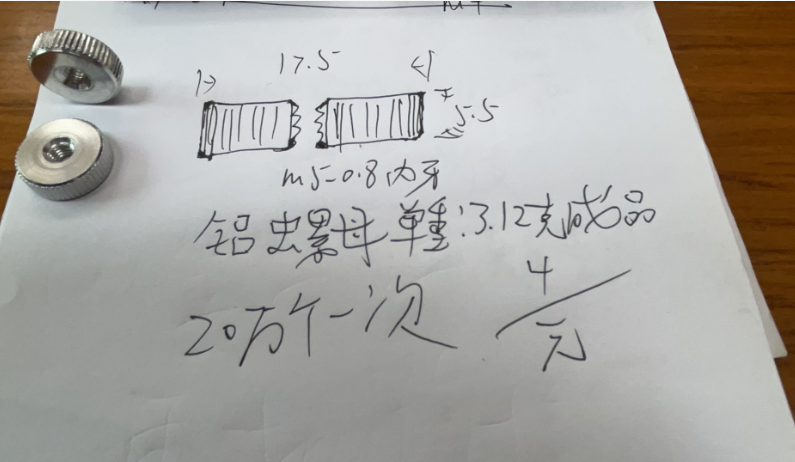 17.5
5.5
M5-0.8内牙
铝螺母单重:3.12克成品
20万个一次
4/元